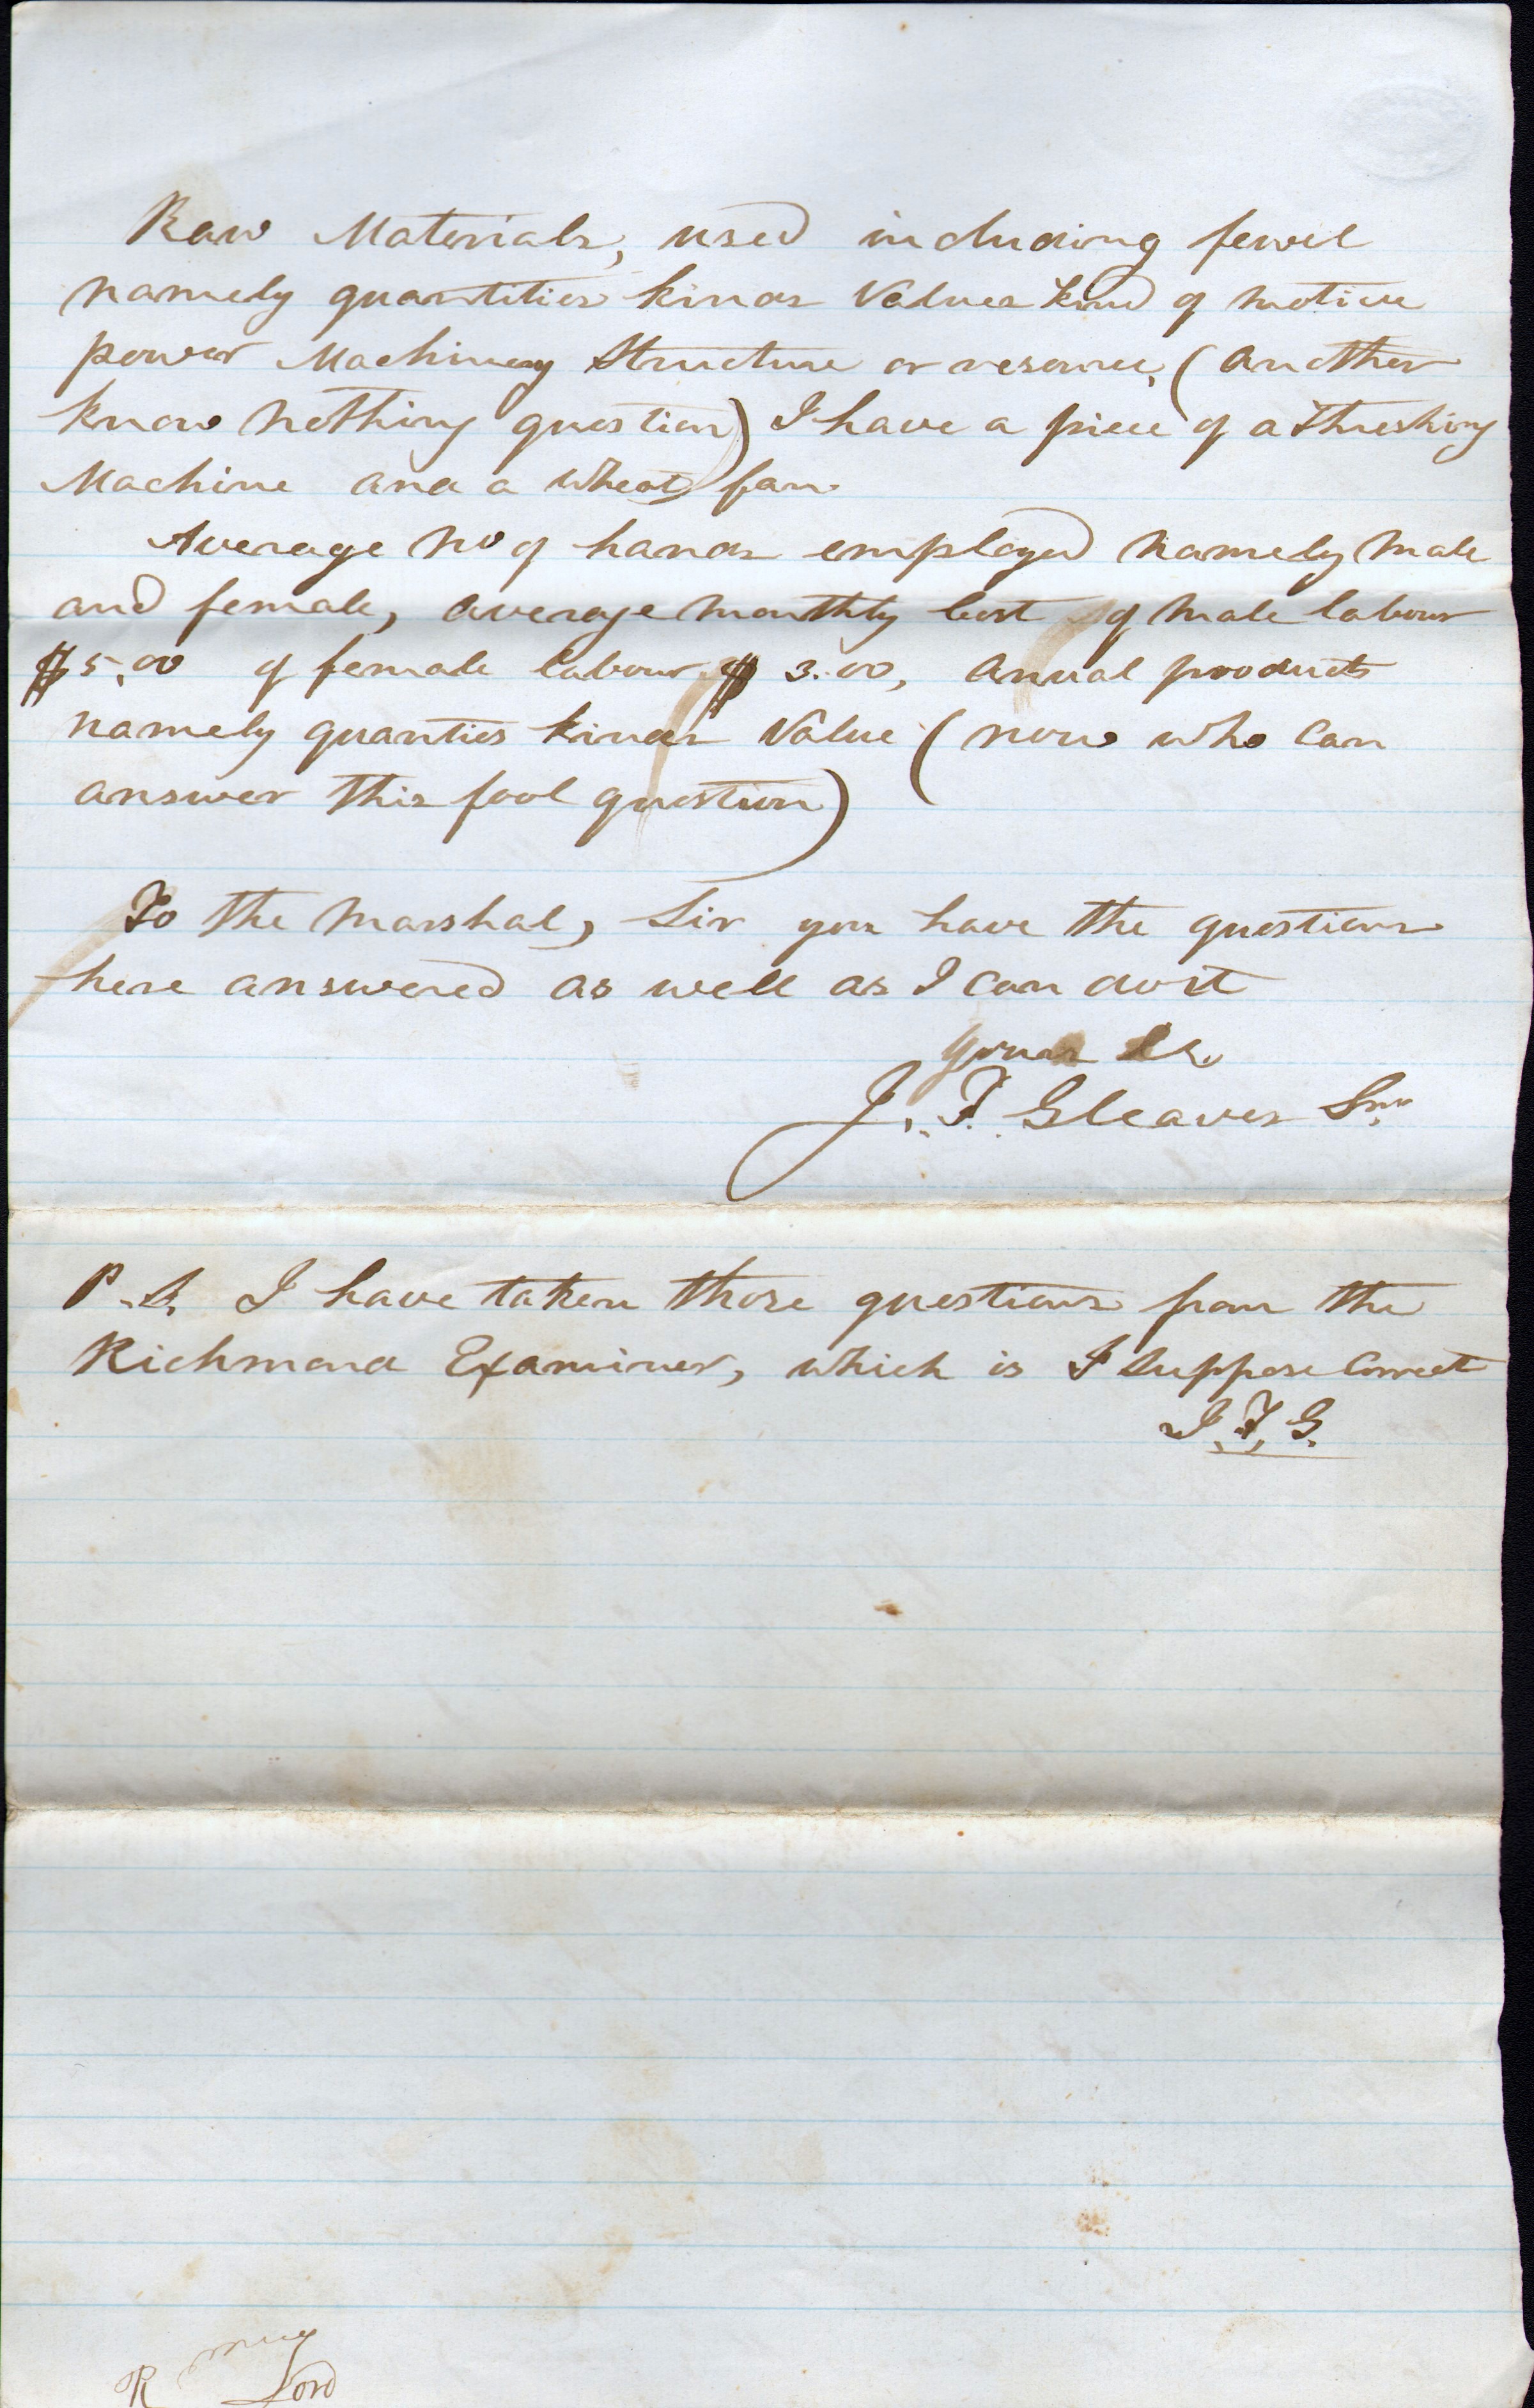 Raw Materials, used including fewel
namely quantities kinds Values kind of motive
power Machinery Structure or resource, (another
know nothing question) I have a piece of a Threshing
Machine and a wheat fan.
Average No of hands employed namely male
and female, average monthly cost of male labour
$5,00 of female labour $3.00, Anual products
namely quanties kinds Value (now who can
answer this fool question)
To the Marshal, Sir you have the questions
here answered as well as I can do it
Yours &c.
J. T. Gleaves Snr
P.S. I have taken those questions from the
Richmond Examiner, which is I suppose Correct
J. T. G.
R Lord